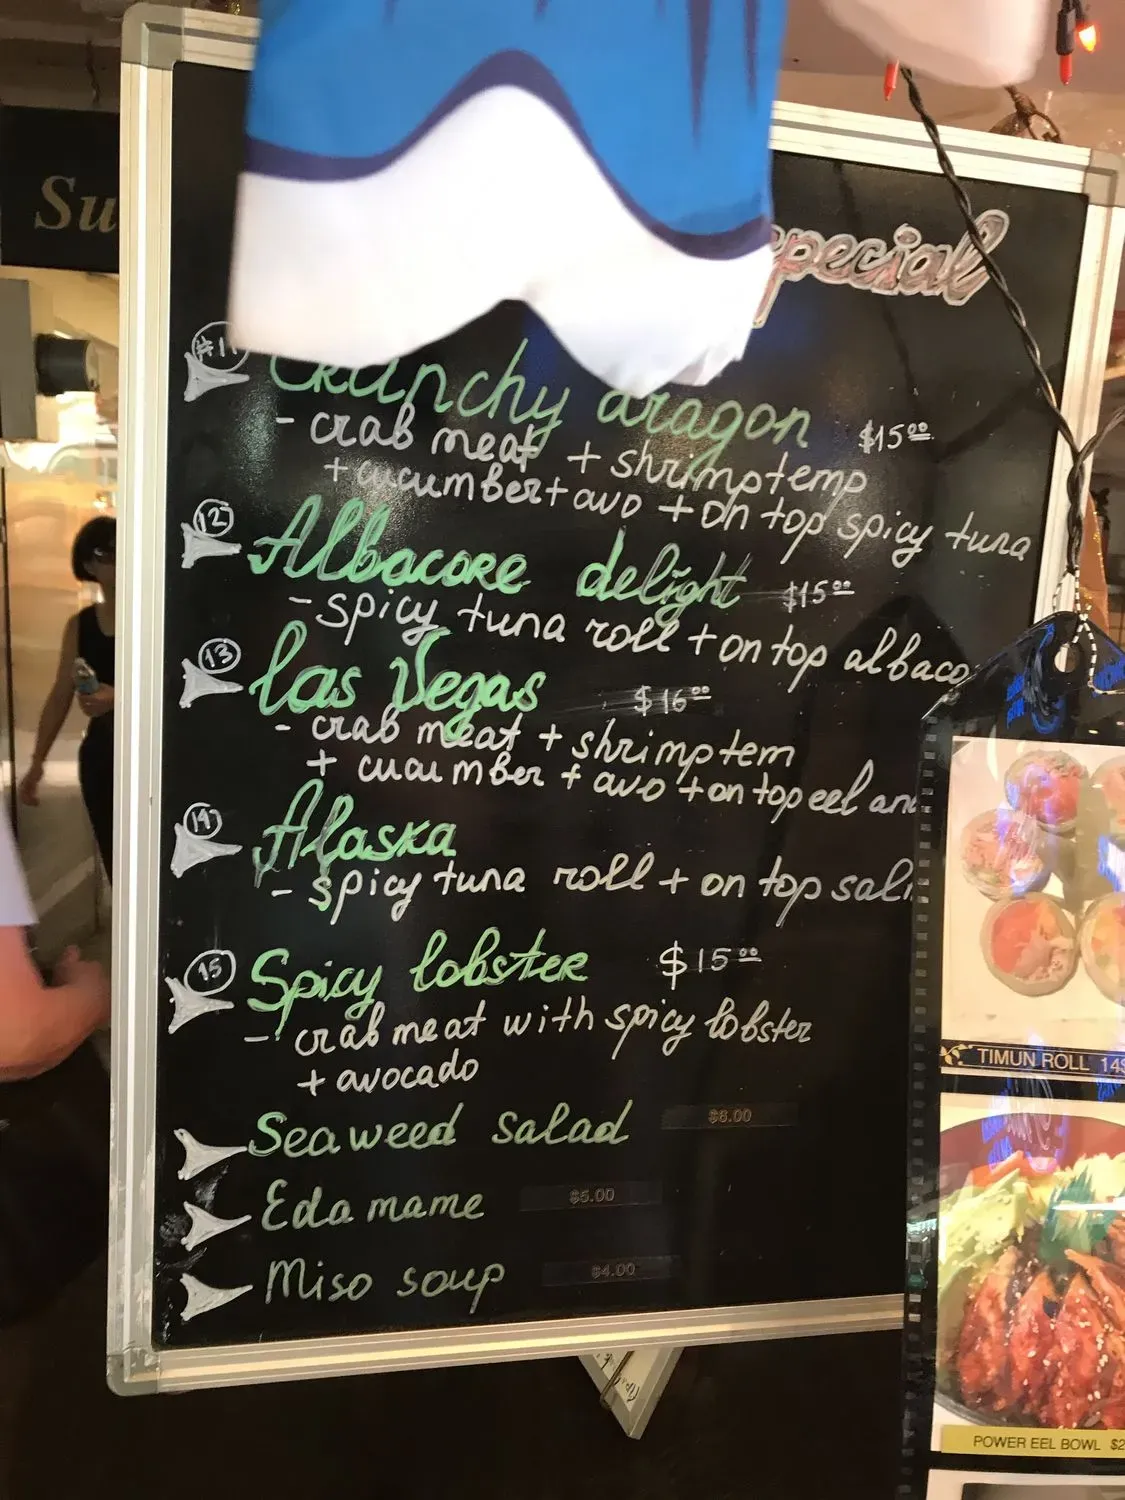 #11
Crunchy dragon $15.00
- crab meat + shrimp temp
+ cucumber + avo + on top spicy tuna
12
Albacore delight $15.00
- spicy tuna roll + on top albaco
13
Las Vegas $16.00
- crab meat + shrimp tem
+ cucumber + avo + on top eel and
14
Alaska
- spicy tuna roll + on top sal
15
Spicy lobster $15.00
- crab meat with spicy lobster
+ avocado
Seaweed salad $6.00
Edamame $5.00
Miso soup $4.00
pecial
Su
TIMUN ROLL 14$
POWER EEL BOWL $2